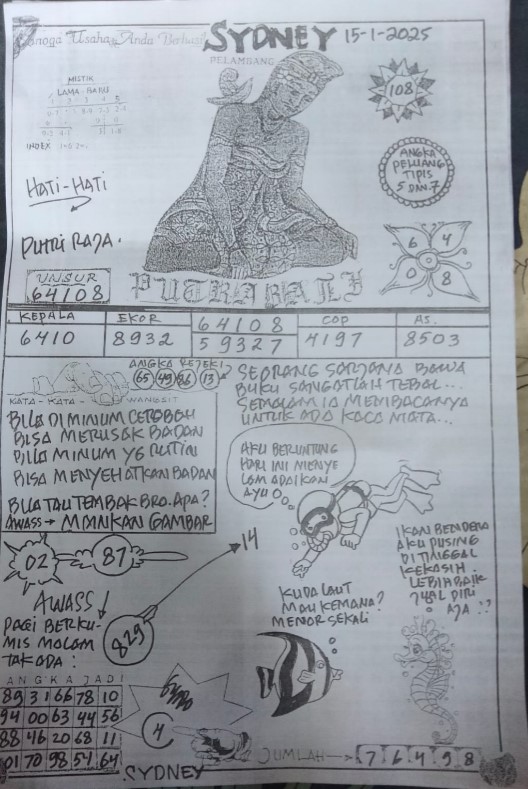 Semoga Usaha Anda Berhasil SYDNEY 15-1-2025
PELAMBANG
MISTIK
LAMA - BARU
INDEX
108
ANGKA
PELUANG
TIPIS
5 DAN 7
HATI-HATI
PUTRI RAJA.
6 4
0 8
UNSUR
64108
PUTRA BALI
KEPALA EKOR 64108 COP AS.
6410 8932 59327 4197 8503
ANGKA REJEKI
65 49 86 13
KATA - KATA - WANGSIT
BILA DI MINUM CEROBOH
BISA MERUSAK BADAN
BILA MINUM YG RUTIN
BISA MENYEHATKAN BADAN
BILA TAU TEMBAK BRO. APA?
AWASS → MAINKAN GAMBAR
SEORANG SARJANA BAWA
BUKU SANGATLAH TEBAL...
SEMALAM IA MEMBACANYA
UNTUK ADA KACA MATA...
AKU BERUNTUNG
HARI INI MENYE
LAM ADA IKAN
AYU
14
02 87
AWASS!
829
PAGI BERKU-
MIS MALAM
TAK ADA:
IKAN BENDERA
AKU PUSING
DI TINGGAL
KEKASIH.
LEBIH BAIK
JUAL DIRI
AJA ::
KUDA LAUT
MAU KEMANA?
MENOR SEKALI
ANGKA JADI
89 31 66 78 10
94 00 63 44 56
88 46 20 68 11
01 70 98 54 64
4
SYDNEY
JUMLAH 7 6 4 9 8